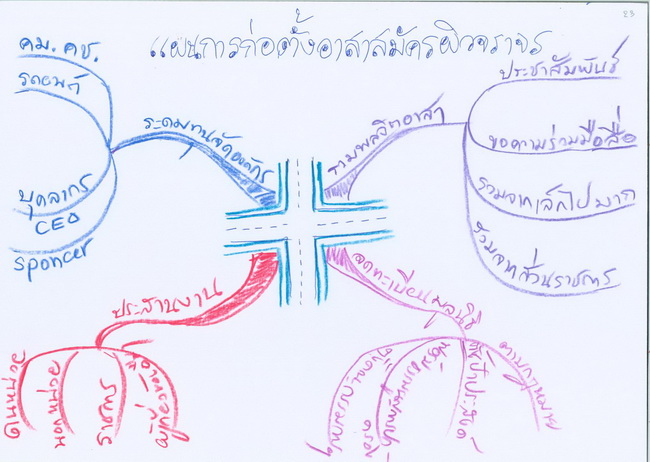 23
แผนการก่อตั้งอาสาสมัครผิวจราจร
คม. คช.
รถยนต์
บุคลากร
CEO
Sponcer
ระดมทุนจัดองค์กร
รวมพลจิตอาสา
ประชาสัมพันธ์
ขอความร่วมมือสื่อ
รวมจากเล็กไปมาก
ร่วมจากส่วนราชการ
ประสานงาน
ในหน่วย
นอกหน่วย
ราชการ
จดทะเบียนมูลนิธิ
ตามกฎหมาย